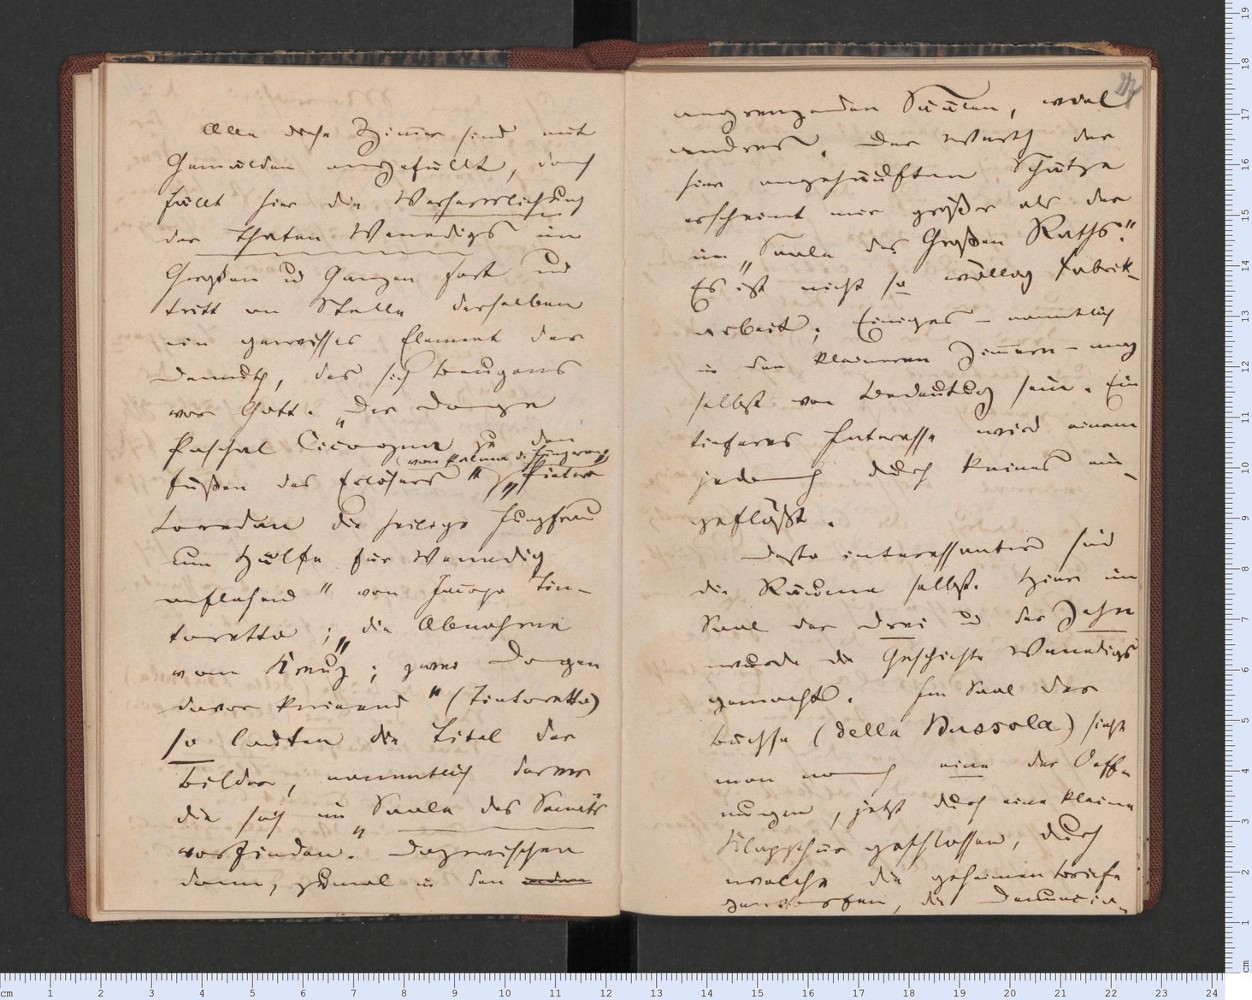 Alle diese Zimmer sind mit
Gemälden angefüllt, doch
fällt hier die Verherrlichung
der Thaten Venedigs im
Großen u Ganzen fort und
tritt an Stelle derselben
ein gewisses Element der
Demuth, des sich Beugens
vor Gott. „Der Doge
Paschal Cicogna zu den
(von Palma di Giovane)
Füßen des Erlösers“; „Pietro
Loredan die heilige Jungfrau
um Hülfe für Venedig
anflehend“ von Jacopo Tin-
toretto; „die Abnahme
vom Kreuz; zwei Dogen
davor knieend“ (Tintoretto)
so lauten die Titel der
Bilder, namentlich derer
die sich im „Saale des Senats“
vorfinden. Dazwischen
dann, zumal in den
angrenzenden Sälen, viel
andres. Der Werth der
hier angehäuften Schätze
erscheint mir größer als der
im „Saale des Großen Raths.“
Es ist nicht so völlig Fabrik-
arbeit; Einiges – namentlich
in den kleineren Zimmern – mag
selbst von Bedeutung sein. Ein
tieferes Interesse wird einem
jedoch durch keines ein-
geflößt.
Desto interessanter sind
die Räume selbst. Hier im
Saal der Drei u der Zehn
wurde die Geschichte Venedigs
gemacht. Im Saal der
Büchse (della Bussola) sieht
man noch eine der Oeff-
nungen, jetzt durch eine kleine
Klappthür geschlossen, durch
welche die geheimen Briefe
geworfen, die Denuncia-